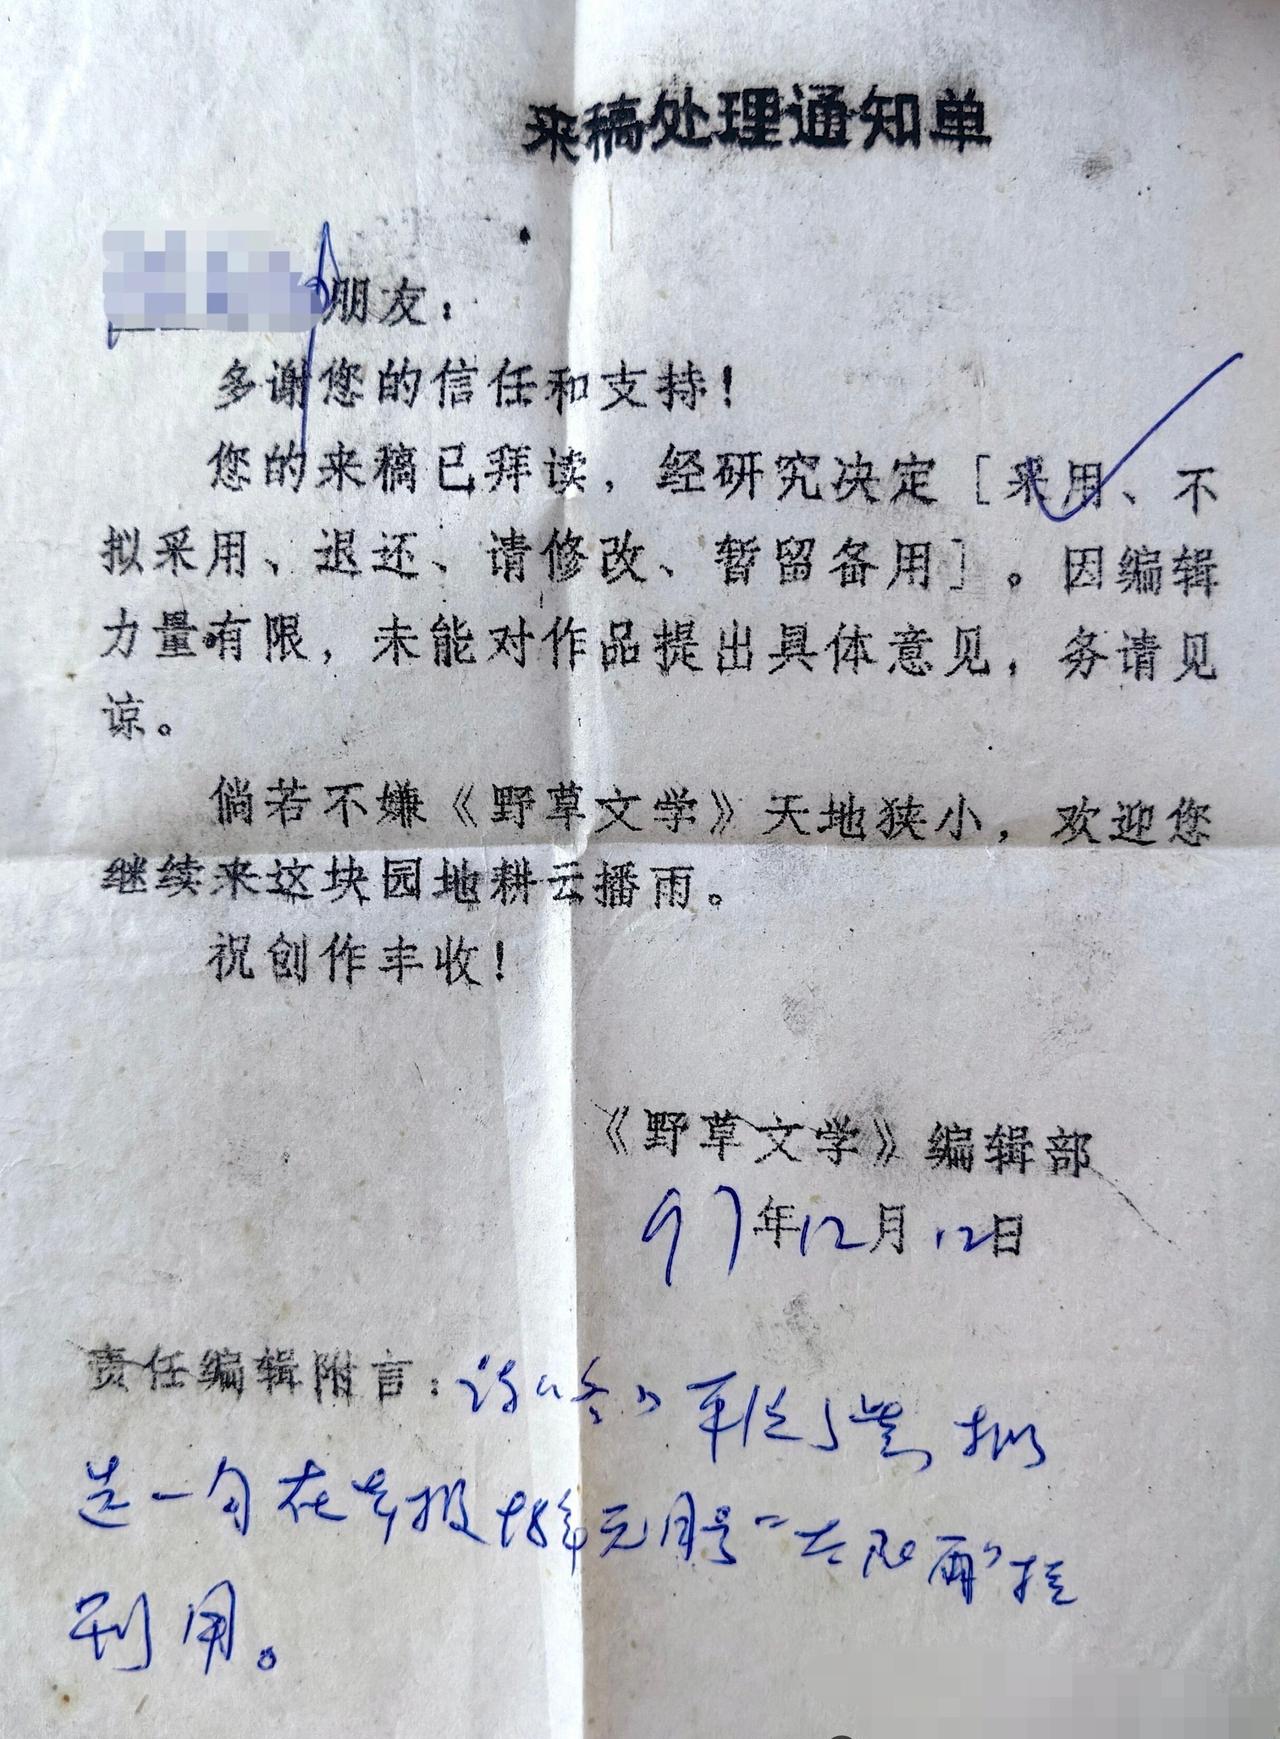 来稿处理通知单
朋友：
多谢您的信任和支持！
您的来稿已拜读，经研究决定［采用、不
拟采用、退还、请修改、暂留备用］。因编辑
力量有限，未能对作品提出具体意见，务请见
谅。
倘若不嫌《野草文学》天地狭小，欢迎您
继续来这块园地耕云播雨。
祝创作丰收！
《野草文学》编辑部
97年12月12日
责任编辑附言：诗《冬》
选一句在本报元月号“太阳雨”
刊用。